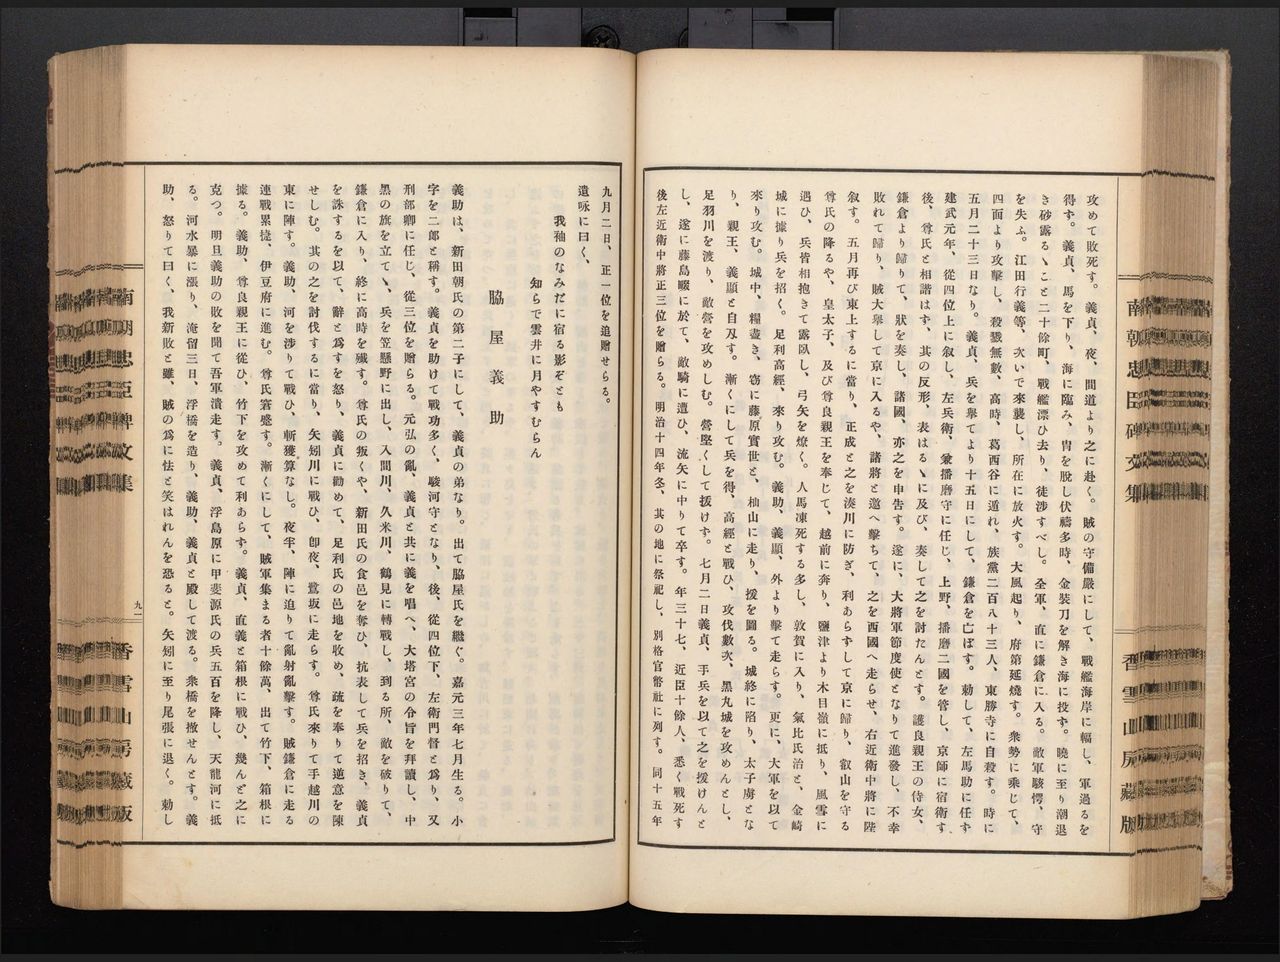 攻めて敗死す。義貞、夜、間道より之に赴く。賊の守備嚴にして、戰艦海岸に輻し、軍過るを
得ず。義貞、馬を下り、海に臨み、冑を脫し伏禱多時、金裝刀を解き海に投ず。曉に至り潮退
き砂露るゝこと二十餘町、戰艦漂ひ去り、徒涉すべし。全軍、直に鎌倉に入る。敵軍駭愕、守
を失ふ。江田行義等、次いで來襲し、所在に放火す。大風起り、府第延燒す。衆勢に乘じて、
四面より攻擊し、殺戮無數、高時、葛西谷に遁れ、族黨二百八十三人、東勝寺に自殺す。時に
五月二十三日なり。義貞、兵を擧てより十五日にして、鎌倉を亡ぼす。勅して、左馬助に任ず
建武元年、從四位上に叙し、左兵衛、兼播磨守に任じ、上野、播磨二國を管し、京師に宿衛す
後、尊氏と相諧はず、其の反形、表はるゝに及び、奏して之を討たんとす。護良親王の侍女、
鎌倉より歸りて、狀を奏し、諸國、亦之を申告す。遂に、大將軍節度使となりて進發し、不幸
敗れて歸り、賊大擧して京に入るや、諸將と邀へ擊ちて、之を西國へ走らせ、右近衛中將に陞
叙す。五月再び東上するに當り、正成と之を湊川に防ぎ、利あらずして京に歸り、叡山を守る
尊氏の降るや、皇太子、及び尊良親王を奉じて、越前に奔り、鹽津より木目嶺に抵り、風雪に
遇ひ、兵皆相抱きて露臥し、弓矢を燎く。人馬凍死する多し、敦賀に入り、氣比氏治と、金崎
城に據り兵を招く。足利高經、來り攻む。義助、義顯、外より擊て走らす。更に、大軍を以て
來り攻む。城中、糧盡き、窃に藤原實世と、杣山に走り、援を圖る。城終に陷り、太子虜とな
り、親王、義顯と自刄す。漸くにして兵を得、高經と戰ひ、攻伐數次、黑丸城を攻めんとし、
足羽川を渡り、敵營を攻めしむ。營堅くして拔けず。七月二日義貞、手兵を以て之を援けんと
し、遂に藤島畷に於て、敵騎に遭ひ、流矢に中りて卒す。年三十七、近臣十餘人、悉く戰死す
後左近衛中將正三位を贈らる。明治十四年冬、其の地に祭祀し、別格官幣社に列す。同十五年
南朝忠臣碑文集
香雪山房藏版
九月二日、正一位を追贈せらる。
遺咏に曰く、
我袖のなみだに宿る影ぞとも
知らで雲井に月やすむらん
脇屋義助
義助は、新田朝氏の第二子にして、義貞の弟なり。出て脇屋氏を繼ぐ。嘉元三年七月生る。小
字を二郎と稱す。義貞を助けて戰功多く、駿河守となり、後、從四位下、左衛門督と爲り、又
刑部卿に任じ、從三位を贈らる。元弘の亂、義貞と共に義を唱へ、大塔宮の令旨を拜讀し、中
黑の旗を立てゝ、兵を笠懸野に出し、入間川、久米川、鶴見に轉戰し、到る所、敵を破りて、
鎌倉に入り、終に高時を殲す。尊氏の叛くや、新田氏の食邑を奪ひ、抗表して兵を招き、義貞
を誅するを以て、辭と爲すを怒り、義貞に勸めて、足利氏の邑地を收め、疏を奉りて逆意を陳
せしむ。其の之を討伐するに當り、矢矧川に戰ひ、卽夜、鷺坂に走らす。尊氏來りて手越川の
東に陣す。義助、河を涉りて戰ひ、斬獲算なし。夜半、陣に迫りて亂射亂擊す。賊鎌倉に走る
連戰累捷、伊豆府に進む。尊氏窘蹙す。漸くにして、賊軍集まる者十餘萬、出て竹下、箱根に
據る。義助、尊良親王に從ひ、竹下を攻めて利あらず。義貞、直義と箱根に戰ひ、幾んど之に
克つ。明旦義助の敗を聞て吾軍潰走す。義貞、浮島原に甲斐源氏の兵五百を降し、天龍河に抵
る。河水暴に漲り、淹留三日、浮橋を造り、義助、義貞と殿して渡る。衆橋を撤せんとす。義
助、怒りて曰く、我新敗と雖、賊の爲に怯と笑はれんを恐ると。矢矧に至り尾張に退く。勅し
南朝忠臣碑文集
九一
香雪山房藏版